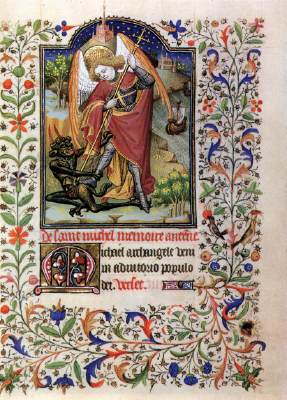 De saint michel memoire antene
Michael archangele veni
in adiutorio populo
dei. Verset.